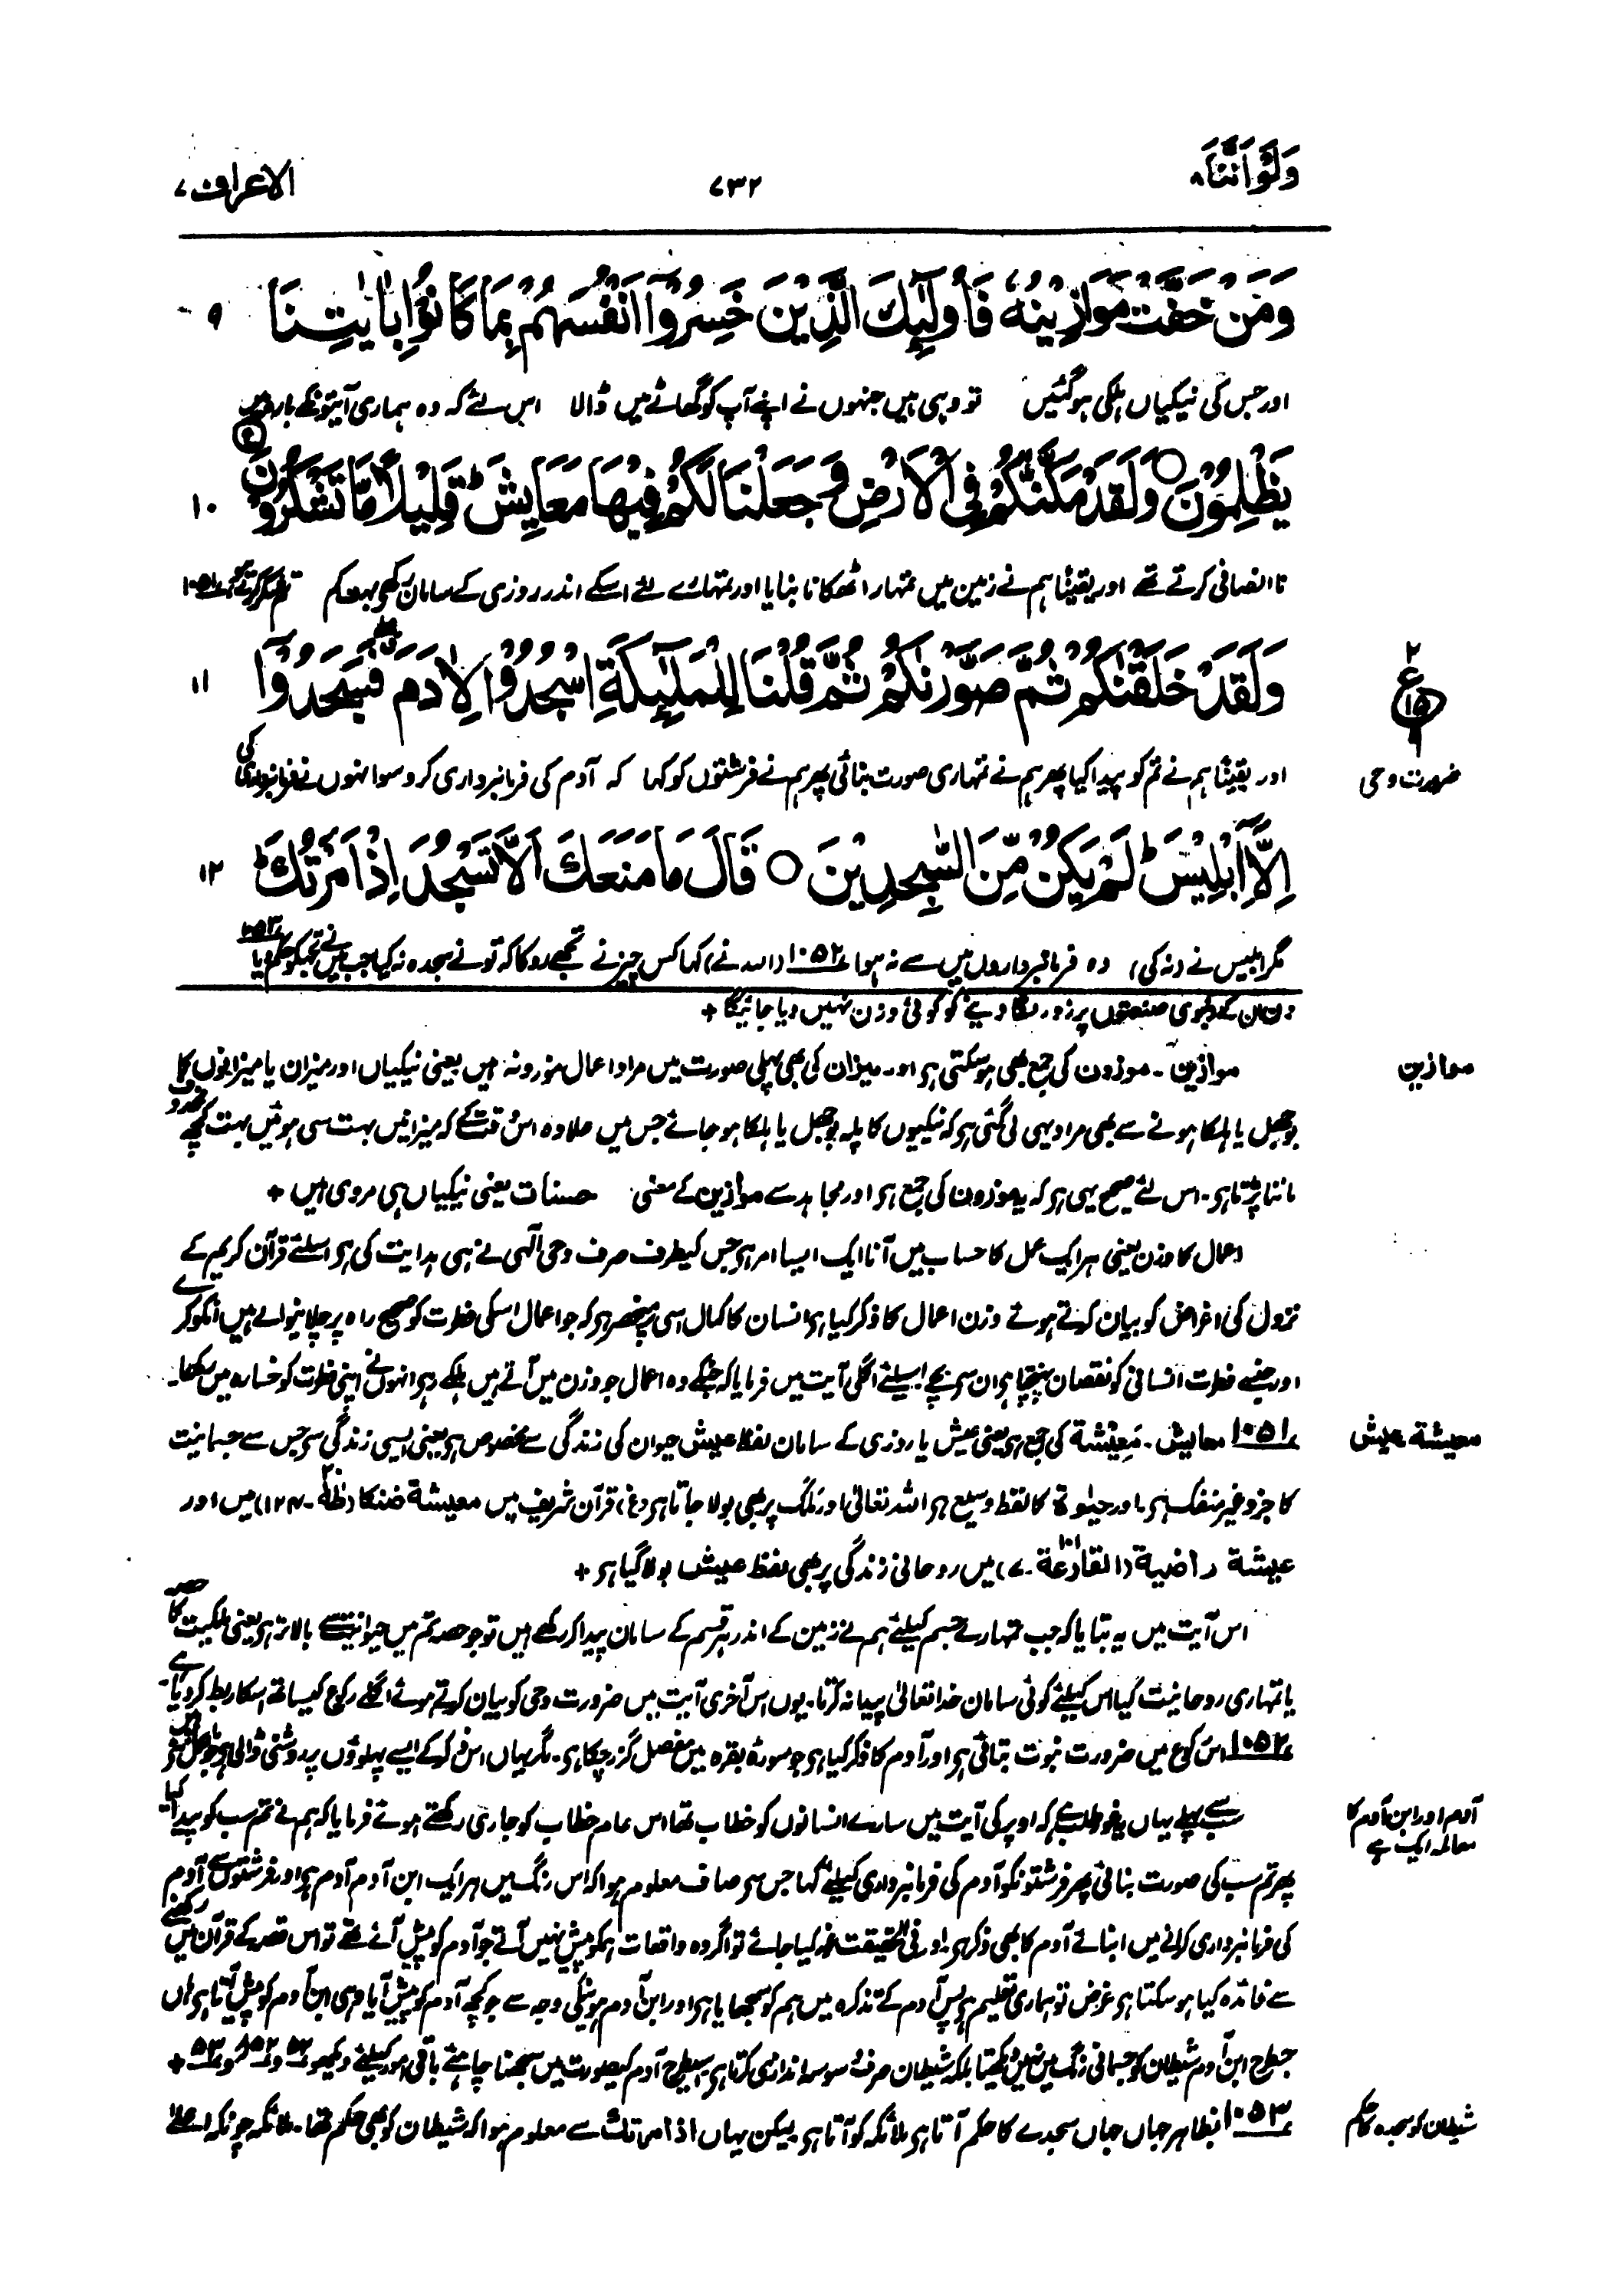 ولواننا ۸
۷۳۲
الاعراف ۷
وَمَنْ خَفَّتْ مَوَازِيْنُهٗ فَاُولٰٓئِكَ الَّذِيْنَ خَسِرُوْٓا اَنْفُسَهُمْ بِمَا كَانُوْا بِاٰيٰتِنَا
۹
اور جس کی نیکیاں ہلکی ہوگئیں تو وہی ہیں جنہوں نے اپنے آپ کو گھاٹے میں ڈالا اس لئے کہ وہ ہماری آیتونکے بارہ میں
يَظْلِمُوْنَ ○ وَلَقَدْ مَكَّنّٰكُمْ فِى الْاَرْضِ وَجَعَلْنَا لَكُمْ فِيْهَا مَعَايِشَ ؕ قَلِيْلًا مَّا تَشْكُرُوْنَ
۱۰
ناانصافی کرتے تھے اور یقیناً ہم نے زمین میں تمہارا ٹھکانا بنایا اور تمہارے لئے اسکے اندر روزی کے سامان رکھے بہت کم تم شکر کرتے ہو ۱۰۵۱
وَلَقَدْ خَلَقْنٰكُمْ ثُمَّ صَوَّرْنٰكُمْ ثُمَّ قُلْنَا لِلْمَلٰٓئِكَةِ اسْجُدُوْا لِاٰدَمَ فَسَجَدُوْٓا
۱۱
۲
ع
۱۵
ضرورت وحی
اور یقیناً ہم نے تم کو پیدا کیا پھر ہم نے تمہاری صورت بنائی پھر ہم نے فرشتوں کو کہا کہ آدم کی فرمانبرداری کرو سو انہوں نے فرمانبرداری کی
اِلَّآ اِبْلِيْسَ ؕ لَمْ يَكُنْ مِّنَ السّٰجِدِيْنَ ○ قَالَ مَا مَنَعَكَ اَلَّا تَسْجُدَ اِذْ اَمَرْتُكَ ؕ
۱۲
مگر ابلیس نے (نہ کی) وہ فرمانبرداروں میں سے نہ ہوا ۱۰۵۲ (اللہ نے) کہا کس چیز نے تجھے روکا کہ تو نے سجدہ نہ کیا جب میں نے تجھکو حکم دیا ۱۰۵۳
دن ان کے دنیوی صنعتوں پر زور لگا دینے کو کوئی وزن نہیں دیا جائیگا +
موازین
موازین ۔ موزون کی جمع بھی ہوسکتی ہے اور میزان کی بھی پہلی صورت میں مراد اعمال موزونہ ہیں یعنی نیکیاں اور میزان یا میزانوں کا
بوجھل یا ہلکا ہونے سے بھی مراد یہی لی گئی ہے کہ نیکیوں کا پلہ بوجھل یا ہلکا ہو جائے جس میں علاوہ اس دقت کے کہ میزانیں بہت سی ہوئیں بہت کچھ محذوف
ماننا پڑتا ہے ۔ اس لئے صحیح یہی ہے کہ یہ موزون کی جمع ہے اور مجاہد سے موازین کے معنی حسنات یعنی نیکیاں ہی مروی ہیں +
اعمال کا وزن یعنی ہر ایک عمل کا حساب میں آنا ایک ایسا امر ہے جس کیطرف صرف وحی الٰہی نے ہی ہدایت کی ہے اسلئے قرآن کریم کے
نزول کی اغراض کو بیان کرتے ہوئے وزن اعمال کا ذکر کیا ہے انسان کا کمال اسی پر منحصر ہے کہ جو اعمال اسکی فطرت کو صحیح راہ پر چلانیوالے ہیں انکو کرے
اور جنسے فطرت انسانی کو نقصان پہنچتا ہے ان سے بچے اسیلئے اگلی آیت میں فرمایا کہ جنکے وہ اعمال جو وزن میں آتے ہیں ہلکے رہے انہوں نے اپنی فطرت کو خسارہ میں رکھا ۔
معیشة عیش
۱۰۵۱ معایش ۔ مَعِیْشَة کی جمع ہے یعنی عیش یا روزی کے سامان لفظ عیش حیوان کی زندگی سے مخصوص ہے یعنی ایسی زندگی سے جس سے جسمانیت
کا جزو غیر منفک ہے ۔ اور حیٰوة کا لفظ وسیع ہے اللہ تعالیٰ اور ملک پر بھی بولا جاتا ہے (غ) قرآن شریف میں معیشة ضنکا (طٰهٰ ۲۰ ۔ ۱۲۴) میں اور
عیشة راضیة (القارعة ۱۰۱ ۔ ۷) میں روحانی زندگی پر بھی لفظ عیش بولا گیا ہے +
اس آیت میں یہ بتایا کہ جب تمہارے جسم کیلئے ہم نے زمین کے اندر ہر قسم کے سامان پیدا کر رکھے ہیں تو جو حصہ تم میں حیوانیت سے بالاتر ہے یعنی ملکیت کا حصہ
یا تمہاری روحانیت کیا اس کیلئے کوئی سامان خدا تعالیٰ پیدا نہ کرتا ۔ یوں اس آخری آیت میں ضرورت وحی کو بیان کرتے ہوئے اگلے رکوع کیساتھ اسکا ربط کر دیا ہے ۔
۱۰۵۲ اس رکوع میں ضرورت نبوت بتائی ہے اور آدم کا ذکر کیا ہے جو سورۂ بقرہ میں مفصل گزر چکا ہے ۔ مگر یہاں اس ذکر کے ایسے پہلوؤں پر روشنی ڈالی ہے
آدم اور ابن آدم کا
معاملہ ایک ہے
سب سے پہلے یہاں یہ غور طلب ہے کہ اوپر کی آیت میں سارے انسانوں کو خطاب تھا اس عام خطاب کو جاری رکھتے ہوئے فرمایا کہ ہم نے تم سب کو پیدا کیا
پھر تم سب کی صورت بنائی پھر فرشتونکو آدم کی فرمانبرداری کیلئے کہا جس سے صاف معلوم ہوا کہ اس رنگ میں ہر ایک ابن آدم آدم ہے اور فرشتوں سے آدم
کی فرمانبرداری کرانے میں ابنائے آدم کا بھی ذکر ہے اور فی الحقیقت غور کیا جائے تو اگر وہ واقعات ہمکو پیش نہیں آتے جو آدم کو پیش آئے تھے تو اس قصہ کے قرآن میں رکھنے
سے فائدہ کیا ہو سکتا ہے غرض تو ہماری تعلیم ہے پس آدم کے تذکرہ میں ہم کو سمجھایا ہے اور ابن آدم ہونیکی وجہ سے جو کچھ آدم کو پیش آیا وہی ابن آدم کو پیش آتا ہے ہاں
جسطرح ابن آدم شیطان کو جسمانی رنگ میں نہیں دیکھتا بلکہ شیطان صرف وسوسہ اندازی کرتا ہے اسیطرح آدم کیصورت میں سمجھنا چاہئے باقی امور کیلئے دیکھو ۵۲ و ۵۳ +
شیطان کو سجدہ کا حکم
۱۰۵۳ بظاہر جہاں جہاں سجدے کا حکم آتا ہے ملائکہ کو آتا ہے لیکن یہاں اذ امرتک سے معلوم ہوا کہ شیطان کو بھی حکم تھا ۔ ملائکہ چونکہ اعلےٰ